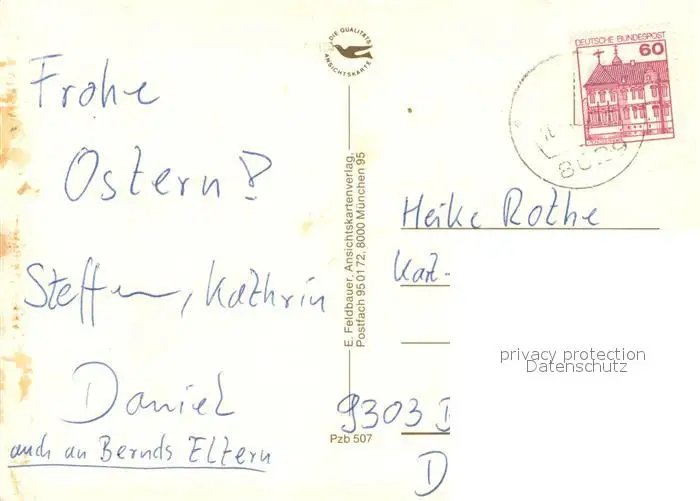 Frohe
Ostern!
Steffen, Kathrin
Daniel
auch an Bernds Eltern
DIE QUALITÄTS
ANSICHTSKARTE
E. Feldbauer, Ansichtskartenverlag,
Postfach 95 01 72, 8000 München 95
Pzb 507
DEUTSCHE BUNDESPOST
60
Heike Rothe
Karl-
9303
D
privacy protection
Datenschutz